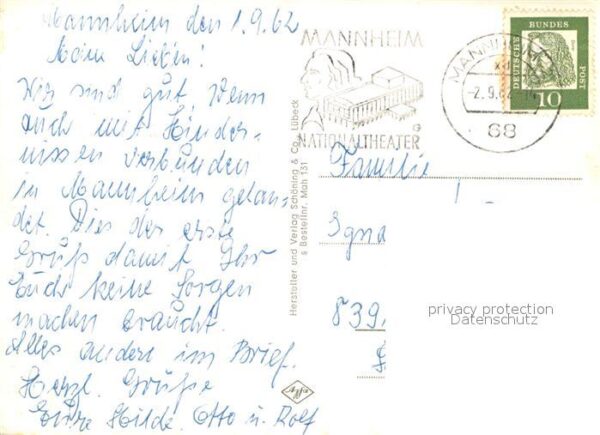 Mannheim den 1.9.62
Meine Lieben!
Wir sind gut, wenn
auch mit Hinder-
nissen verbunden
in Mannheim gelan-
det. Dies der erste
Gruß damit Ihr
Euch keine Sorgen
machen braucht.
Alles andere im Brief.
Herzl. Grüße
Eure Hilde, Otto u. Rolf
Hersteller und Verlag Schöning & Co., Lübeck
Bestellnr. Mah 131
Agfa
MANNHEIM
NATIONALTHEATER
MANNHEIM
-2.9.
68
DEUTSCHE BUNDES POST
10
Familie
839
privacy protection
Datenschutz